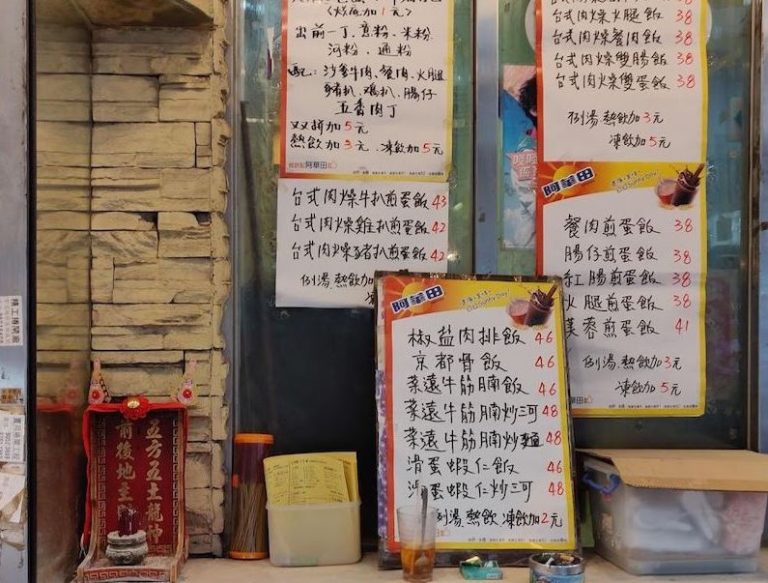 (炆底加1元)
出前一丁、意粉、米粉
河粉、通粉
配:沙爹牛肉、餐肉、火腿
豬扒、雞扒、腸仔
五香肉丁
双拼加5元
熱飲加3元、凍飲加5元
阿華田
台式肉燥牛扒煎蛋飯 43
台式肉燥雞扒煎蛋飯 42
台式肉燥豬扒煎蛋飯 42
例湯.熱飲加
凍
台式肉燥火腿飯 38
台式肉燥餐肉飯 38
台式肉燥雙腸飯 38
台式肉燥雙蛋飯 38
例湯.熱飲加3元
凍飲加5元
阿華田
餐肉煎蛋飯 38
腸仔煎蛋飯 38
紅腸煎蛋飯 38
火腿煎蛋飯 38
芙蓉煎蛋飯 41
例湯.熱飲加3元
凍飲加5元
阿華田
椒盐肉排飯 46
京都骨飯 46
菜遠牛筋腩飯 46
菜遠牛筋腩炒河 48
菜遠牛筋腩炒麵 48
滑蛋蝦仁飯 46
滑蛋蝦仁炒河 48
例湯.熱飲 凍飲加2元
五方五土龍神
前後地主